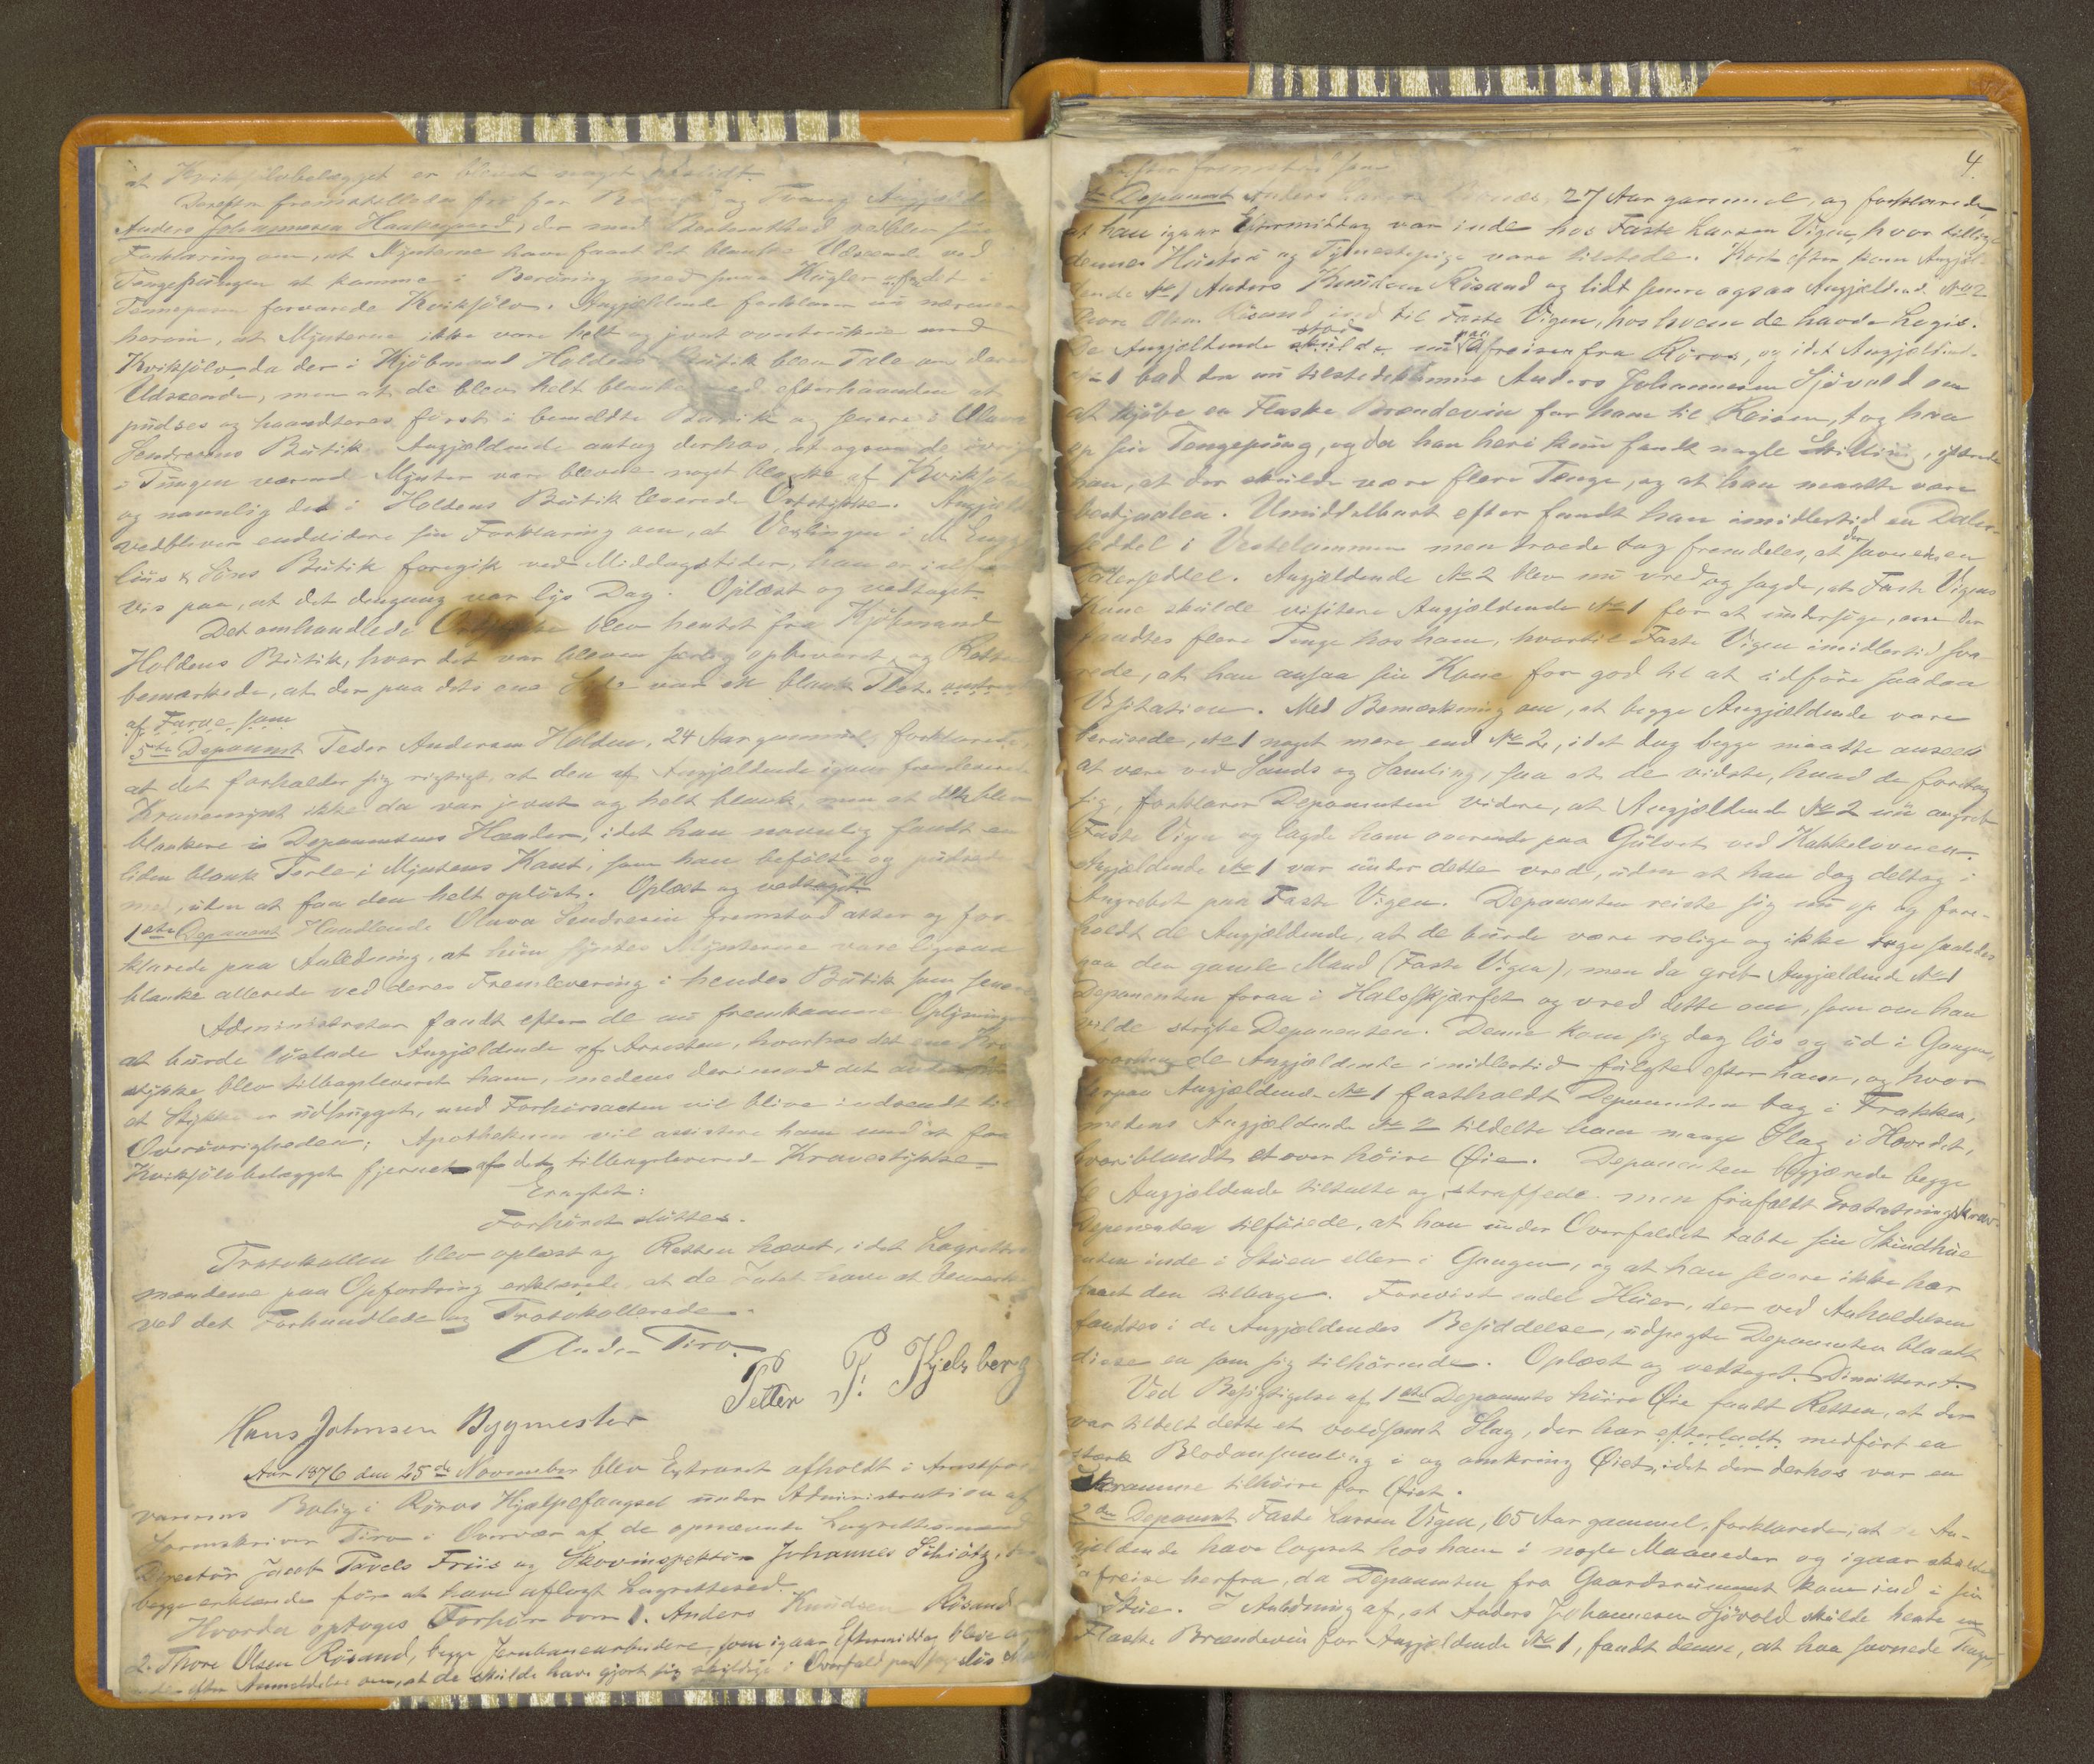 at Kviksølvbelægget er blevet noget
Derefter fremstilledes fri for Baand og Tvang Angjældende
Anders Johannesen Haakegaard, der med Bestemthed vedblev sin
Forklaring om, at Mynterne have faaet det blanke Udseende ved
Pengepungen at komme i Berøring med smaa Kugler af det i
forvarede Kviksølv. Angjældende forklarer nu nærmere
herom, at Mynterne ikke vare helt og jevnt overtrukne med
Kviksølv, da der i Kjøbmand Holdens Butik blev Tale om deres
Udseende, men at de bleve helt blanke ved efterhaanden at
pudses og haandteres først i bemeldte Butik og senere i Olava
Sendresens Butik. Angjældende antog derhos, at ogsaa de øvrige
i Pungen værende Mynter vare blevne noget blanke af Kviksølvet
og navnlig det i Holdens Butik leverede Ortstykke. Angjældende
vedbliver endvidere sin Forklaring om, at Vexlingen i M. Engze-
lius & Søns Butik foregik ved Middagstider, han er ialfald
vis paa, at det dengang var lys Dag. Oplæst og vedtaget.
Det omhandlede blev hentet fra Kjøbmand
Holdens Butik, hvor det var bleven særlig opbevaret, og Retten
bemærkede, at der paa dets ene Side var en blank Plet
af Farve som
5te Deponent Peder Andersen Holden, 24 Aar gammel, forklarede,
at det forholder sig rigtigt, at den af Angjældende igaar fremleverede
Kronemynt ikke da var jevnt og helt blank, men at den blev
blankere i Deponentens Hænder, idet han navnlig fandt en
liden blank Perle i Myntens Kant, som han befølte og pudsede
med, uden at faa den helt opløst. Oplæst og vedtaget.
1ste Deponent Handlende Olava Sendresen fremstod atter og for-
klarede paa Anledning, at hun syntes Mynterne vare ligesaa
blanke allerede ved deres Fremlevering i hendes Butik som senere
Administrator fandt efter de nu fremkomne Oplysninger
at burde løslade Angjældende af Arresten, hvorhos det ene Krone-
stykke blev tilbageleveret ham, medens derimod det andet,
at Stykke er udhugget, med Forhørsacten vil blive indsendt til
Overøvrigheden; Apothekeren vil assistere ham med at faa
Kviksølvbelægget fjernet af det tilbageleverede Kronestykke.
Eragtet:
Forhøret sluttes.
Protokollen blev oplæst og Retten hævet, idet Lagrettes-
mændene paa Opfordring erklærede, at de Intet have at bemærke
ved det Forhandlede og Protokollerede.
Andr. Piro.
Petter P. Hjelzberg
Hans Johnsen Bygmester
Aar 1876 den 25de November blev Extraret afholdt i Arrestfor-
varerens Bolig i Røros Hjælpefængsel under Administration af
Sorenskriver Piro i Overvær af de opnævnte Lagrettesmænd
Directør Jacob Pavels Friis og Skovinspektør Johannes Schiøtz, der
begge erklærede før at have aflagt Lagrettesed.
Hvorda optoges Forhør over 1. Anders Knudsen Røsand
2. Thore Olsen Røsand, begge Jernbanearbeidere, som igaar Eftermiddag bleve
efter Anmeldelse om, at de skulde have gjort sig skyldige i Overfald paa
4.
efter fremstod som
Deponent Anders 27 Aar gammel, og forklarede,
at han igaar Eftermiddag var inde hos Faste Larsen Vigen, hvor tillige
dennes Hustru og Tjenestepige vare tilstede. Kort efter kom Angjæl-
dende No 1 Anders Knudsen Røsand og lidt senere ogsaa Angjældende No 2
Thore Olsen Røsand ind til Faste Vigen, hos hvem de havde Logis.
De Angjældende stod nu paa Afreisen fra Røros, og idet Angjældende
No 1 bad den nu tilstedekomne Anders Johannesen Sjøvold om
at kjøbe en Flaske Brændevin for ham til Reisen, tog han
op sin Pengepung, og da han heri kun fandt nogle Skilling, yttrede
han, at der skulde være flere Penge, og at han maatte være
bestjaalen. Umiddelbart efter fandt han imidlertid en Daler-
seddel i Vestelommen men troede dog fremdeles, at der savnedes en
Dalerseddel. Angjældende No 2 blev nu vred og sagde, at Faste Vigens
Kone skulde visitere Angjældende No 1 for at undersøge, om der
fandtes flere Penge hos ham, hvortil Faste Vigen imidlertid sva-
rede, at han ansaa sin Kone for god til at udføre saadan
Visitation. Med Bemærkning om, at begge Angjældende vare
berusede, No 1 noget mere end No 2, idet dog begge maatte ansees
at være ved Sands og Samling, saa at de vidste, hvad de foretog
sig, forklarer Deponenten videre, at Angjældende No 2 nu angreb
Faste Vigen og lagde ham overende paa Gulvet ved Kakkelovnen.
Angjældende No 1 var under dette vred, uden at han dog deltog i
Angrebet paa Faste Vigen. Deponenten reiste sig nu op og fore-
holdt de Angjældende, at de burde være rolige og ikke tage saaledes
paa den gamle Mand (Faste Vigen), men da greb Angjældende No 1
Deponenten foran i Halsskjærfet og vred dette om, som om han
vilde strybe Deponenten. Denne kom sig dog løs og ud i Gangen,
hvorhen de Angjældende imidlertid fulgte efter ham, og hvor-
derpaa Angjældende No 1 fastholdt Deponenten bag i Frakken,
medens Angjældende No 2 tildelte ham mange Slag i Hovedet,
hvoriblandt et over høire Øie. Deponenten begjærede begge
de Angjældende tiltalte og straffede men frafaldt Erstatningskrav.
Deponenten tilføiede, at han under Overfaldet tabte sin Skindhue
enten inde i Stuen eller i Gangen, og at han senere ikke har
faaet den tilbage. Forevist endel Huer, der ved Anholdelsen
fandtes i de Angjældendes Besiddelse, udpegte Deponenten blandt
disse en som sig tilhørende. Oplæst og vedtaget. Dimitteret.
Ved Besigtigelse af 1ste Deponents høire Øie fandt Retten, at der
var tildelt dette et voldsomt Slag, der har efterladt medført en
stærk Blodansamling i og omkring Øiet, idet der derhos var en
Skramme tilhøire for Øiet.
2den Deponent Faste Larsen Vigen, 65 Aar gammel, forklarede, at de An-
gjældende have logeret hos ham i nogle Maaneder og igaar skulde
afreise herfra, da Deponenten fra Gaardsrummet kom ind i sin
Stue. I Anledning af, at Anders Johannesen Sjøvold skulde hente en
Flaske Brændevin for Angjældende No 1, fandt denne, at han savnede Penge,